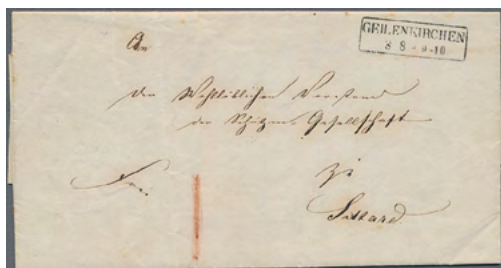 GEILENKIRCHEN
8 8 9-10
An
den Wohllöblichen Vorstand
der Schützen Gesellschaft
zu
Sittard.